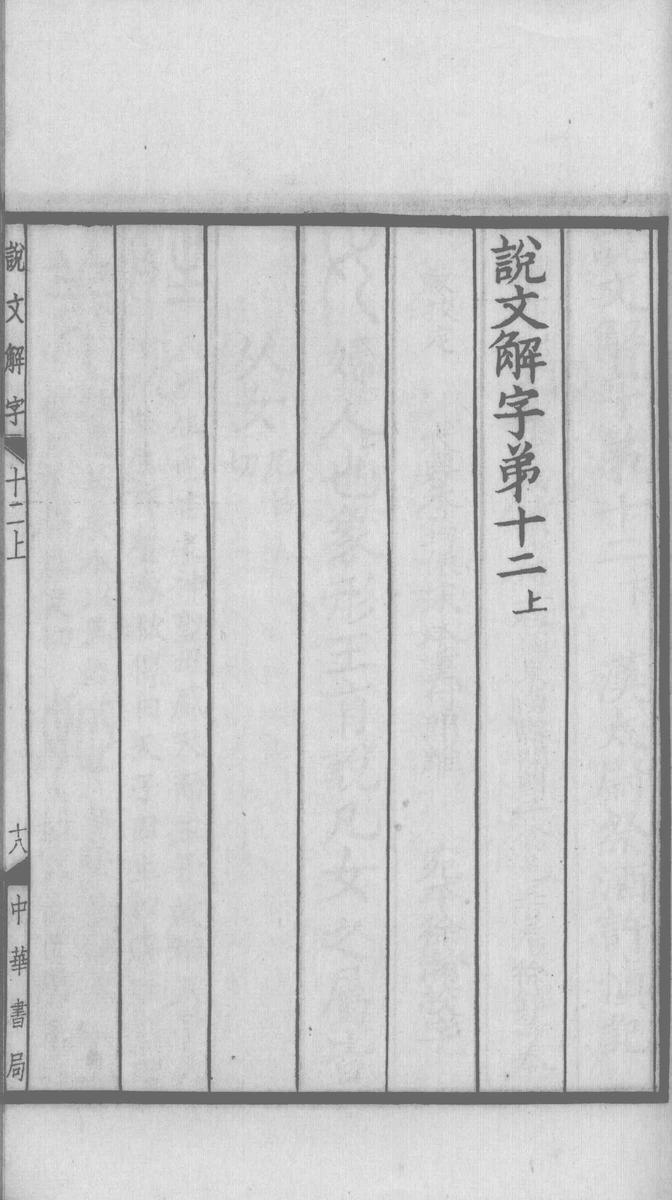 說文解字弟十二上
說文解字 十二上 十八 中華書局